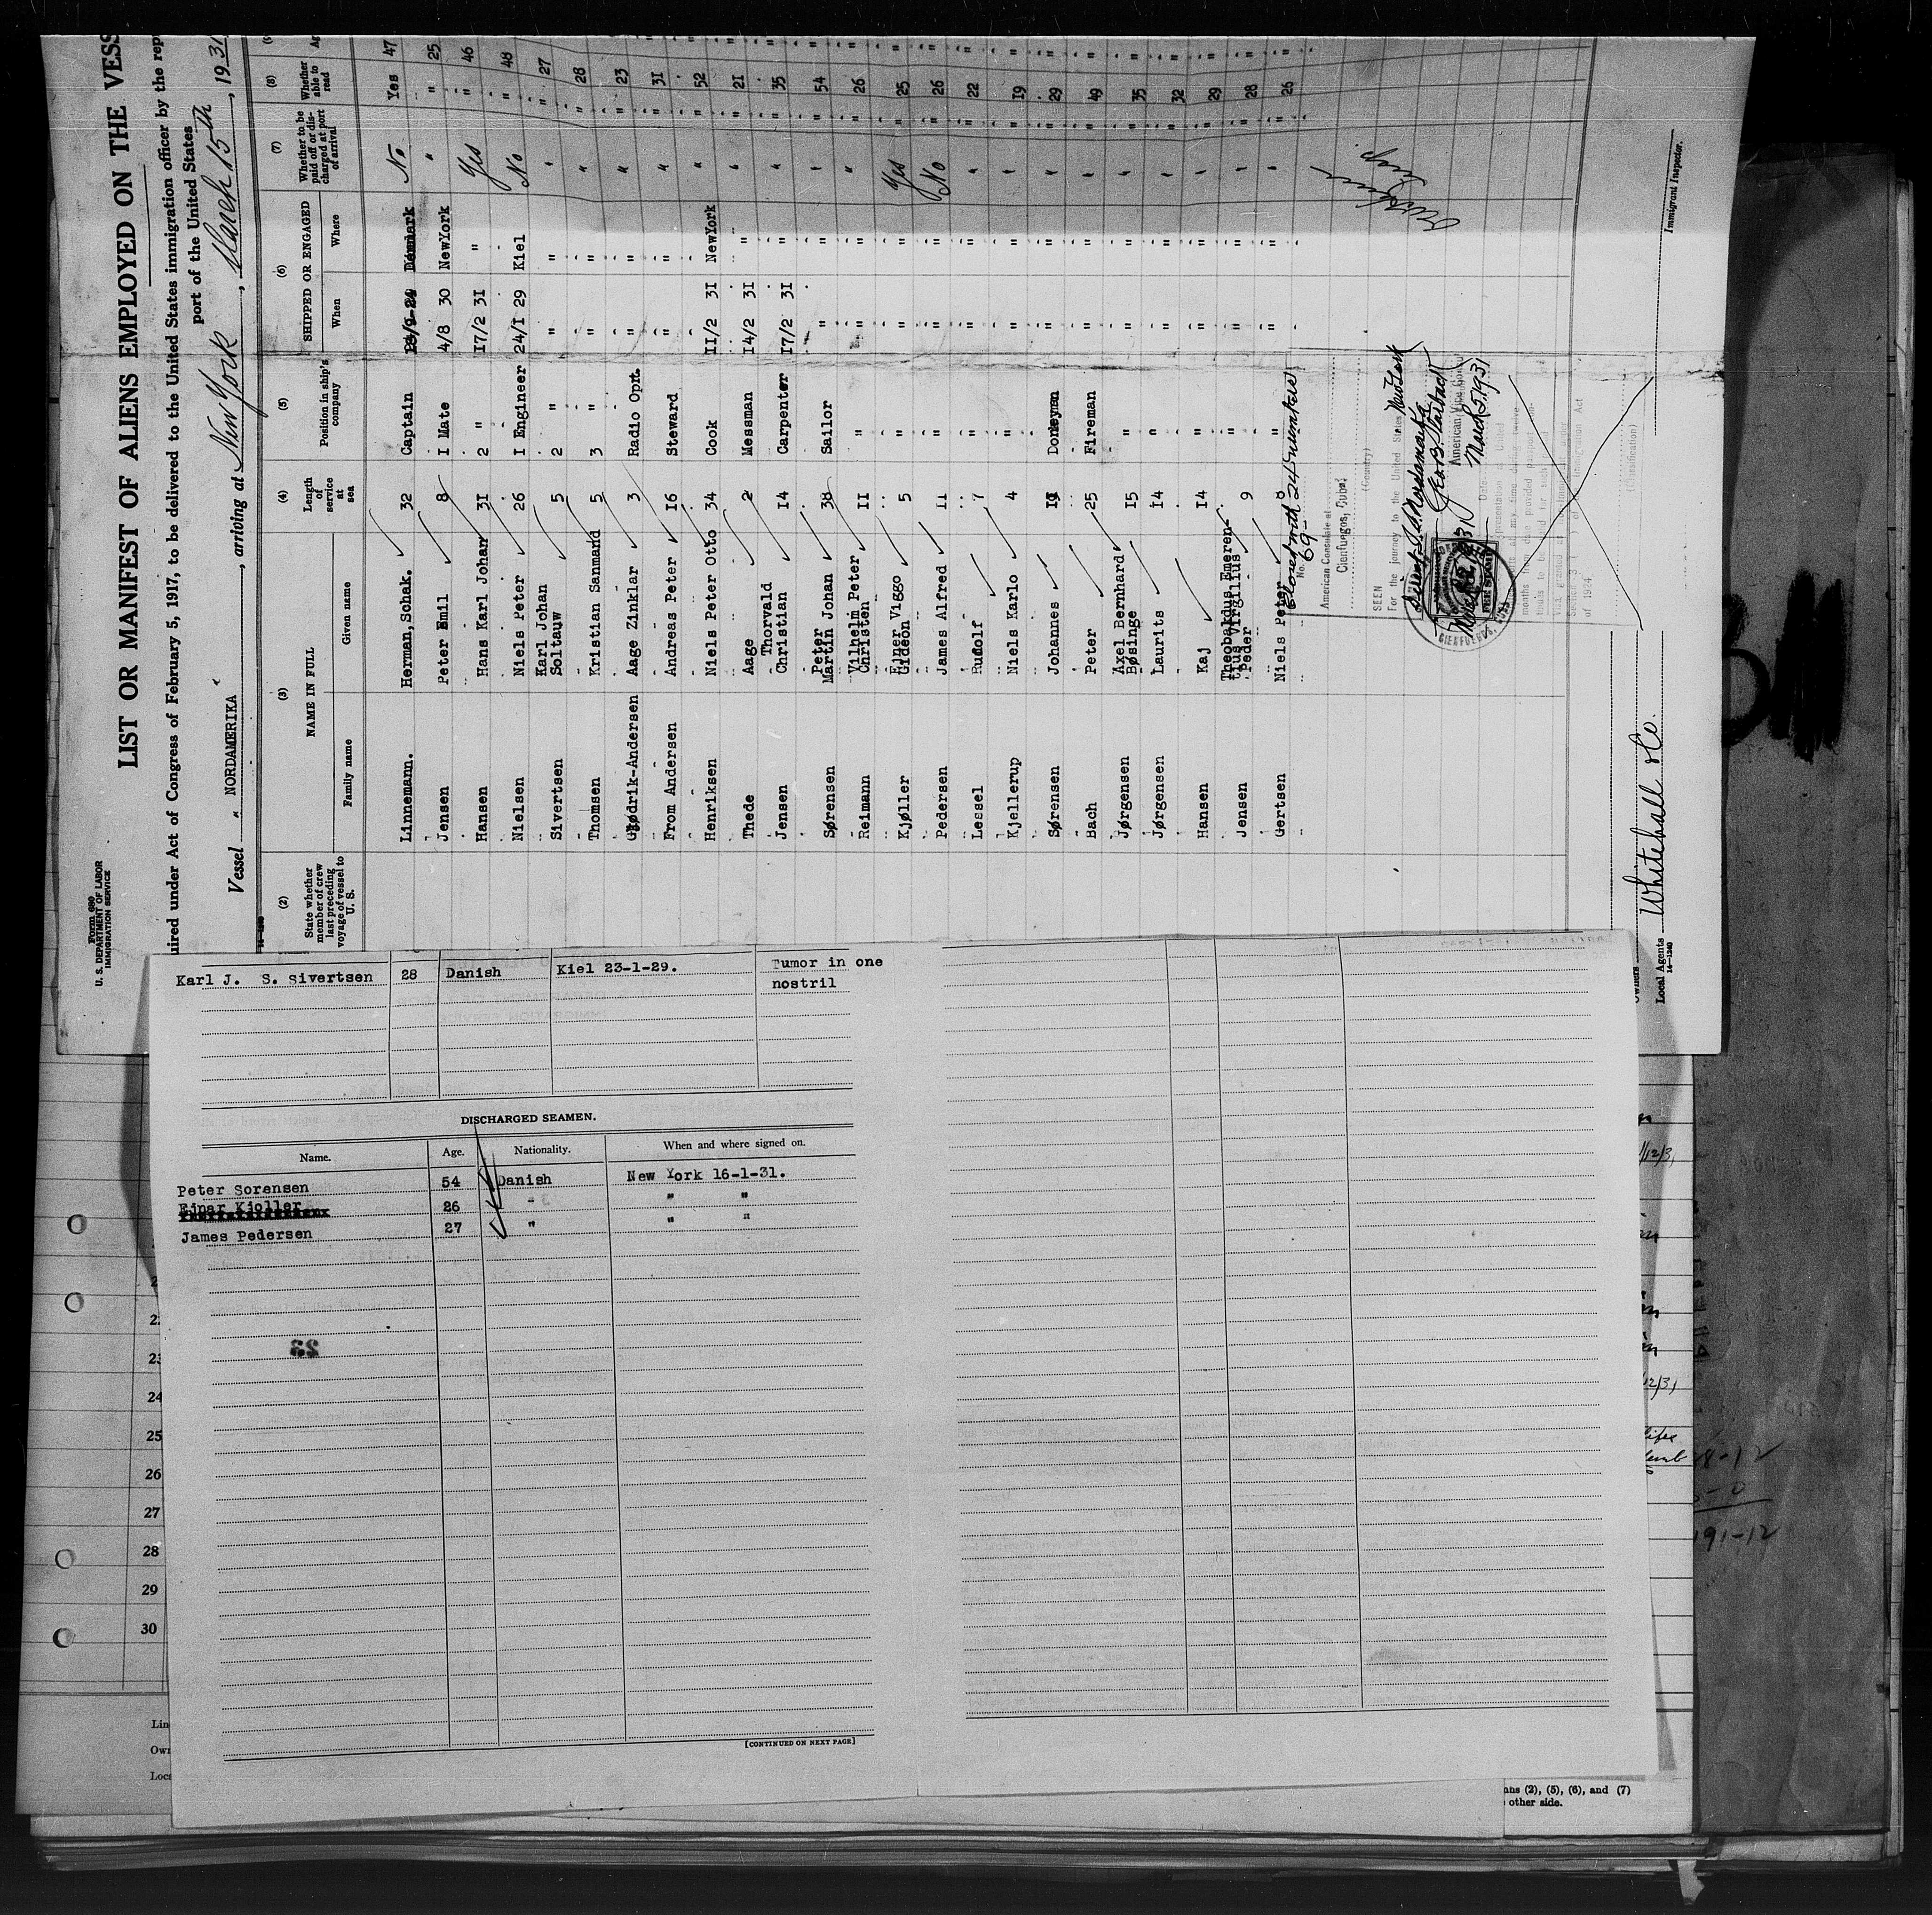 Form 680
U. S. DEPARTMENT OF LABOR
IMMIGRATION SERVICE
LIST OR MANIFEST OF ALIENS EMPLOYED ON THE VESS
uired under Act of Congress of February 5, 1917, to be delivered to the United States immigration officer by the rep
port of the United States
Vessel " NORDAMERIKA " , arriving at New York , March 15th , 1931
(2) (3) (4) (5) (6) (7) (8)
State whether member of crew last preceding voyage of vessel to U. S.
NAME IN FULL
Family name Given name
Length of service at sea
Position in ship's company
SHIPPED OR ENGAGED
When Where
Whether to be paid off or discharged at port of arrival
Whether able to read
Linnemann. Herman, Schak. 32 Captain Denmark No Yes 47
Jensen Peter Emil 8 I Mate 4/8 30 NewYork " " 25
Hansen Hans Karl Johan 31 2 " 17/2 31 " Yes " 46
Nielsen Niels Peter 26 I Engineer 24/I 29 Kiel No " 48
Sivertsen Karl Johan Soltauw 5 2 " " " " " 27
Thomsen Kristian Sanmand 5 3 " " " " " 28
Glødrik-Andersen Aage Zinklar 3 Radio Oprt. " " " " 23
From Andersen Andreas Peter 16 Steward " " " " 31
Henriksen Niels Peter Otto 34 Cook 11/2 31 NewYork " " 52
Thede Aage 2 Messman 14/2 31 " " " 21
Jensen Thorwald Christian 14 Carpenter 17/2 31 " " " 35
Sørensen Peter Martin Johan 38 Sailor " " " " 54
Reimann Vilhelm Peter Christen 11 " " " " " 26
Kjøller Ejner Viggo Gideon 5 " " " Yes " 25
Pedersen James Alfred 11 " " " No " 26
Lessel Rudolf 7 " " " " " 22
Kjellerup Niels Karlo 4 " " " " " 19
Sørensen Johannes Donkeyman " " " " 29
Bach Peter 25 Fireman " " " " 49
Jørgensen Axel Bernhard Bøsinge 15 " " " " " 35
Jørgensen Laurits 14 " " " " " 32
Hansen Kaj 14 " " " " " 29
Jensen Theobakdus Emeren- tius Virgilius Peder 9 " " " " " 28
Gertsen Niels Peter 8 " " " " " 26
Closed with 24 numbers
No. 69-
American Consulate at
Cienfuegos, Cuba;
(Country)
SEEN
For the journey to the United States New York
Direct
American Vice Consul
March 5, 1931
Date
of 1924
(Classification)
CIENFUEGOS, CUBA
FEE STAMP
Immigrant Inspector.
Owners
Local Agents Whitehall & Co.
14—1240
Karl J. S. Sivertsen 28 Danish Kiel 23-1-29. Tumor in one
nostril
DISCHARGED SEAMEN.
Name. Age. Nationality. When and where signed on.
Peter Sorensen 54 Danish New York 16-1-31.
Ejnar Kjoller 26 " " "
James Pedersen 27 " " "
23
[CONTINUED ON NEXT PAGE]
22
23
24
25
26
27
28
29
30
Lin
Own
Loca
/12/3,
12/3,
8-12
191-12
nns (2), (5), (6), and (7)
other side.